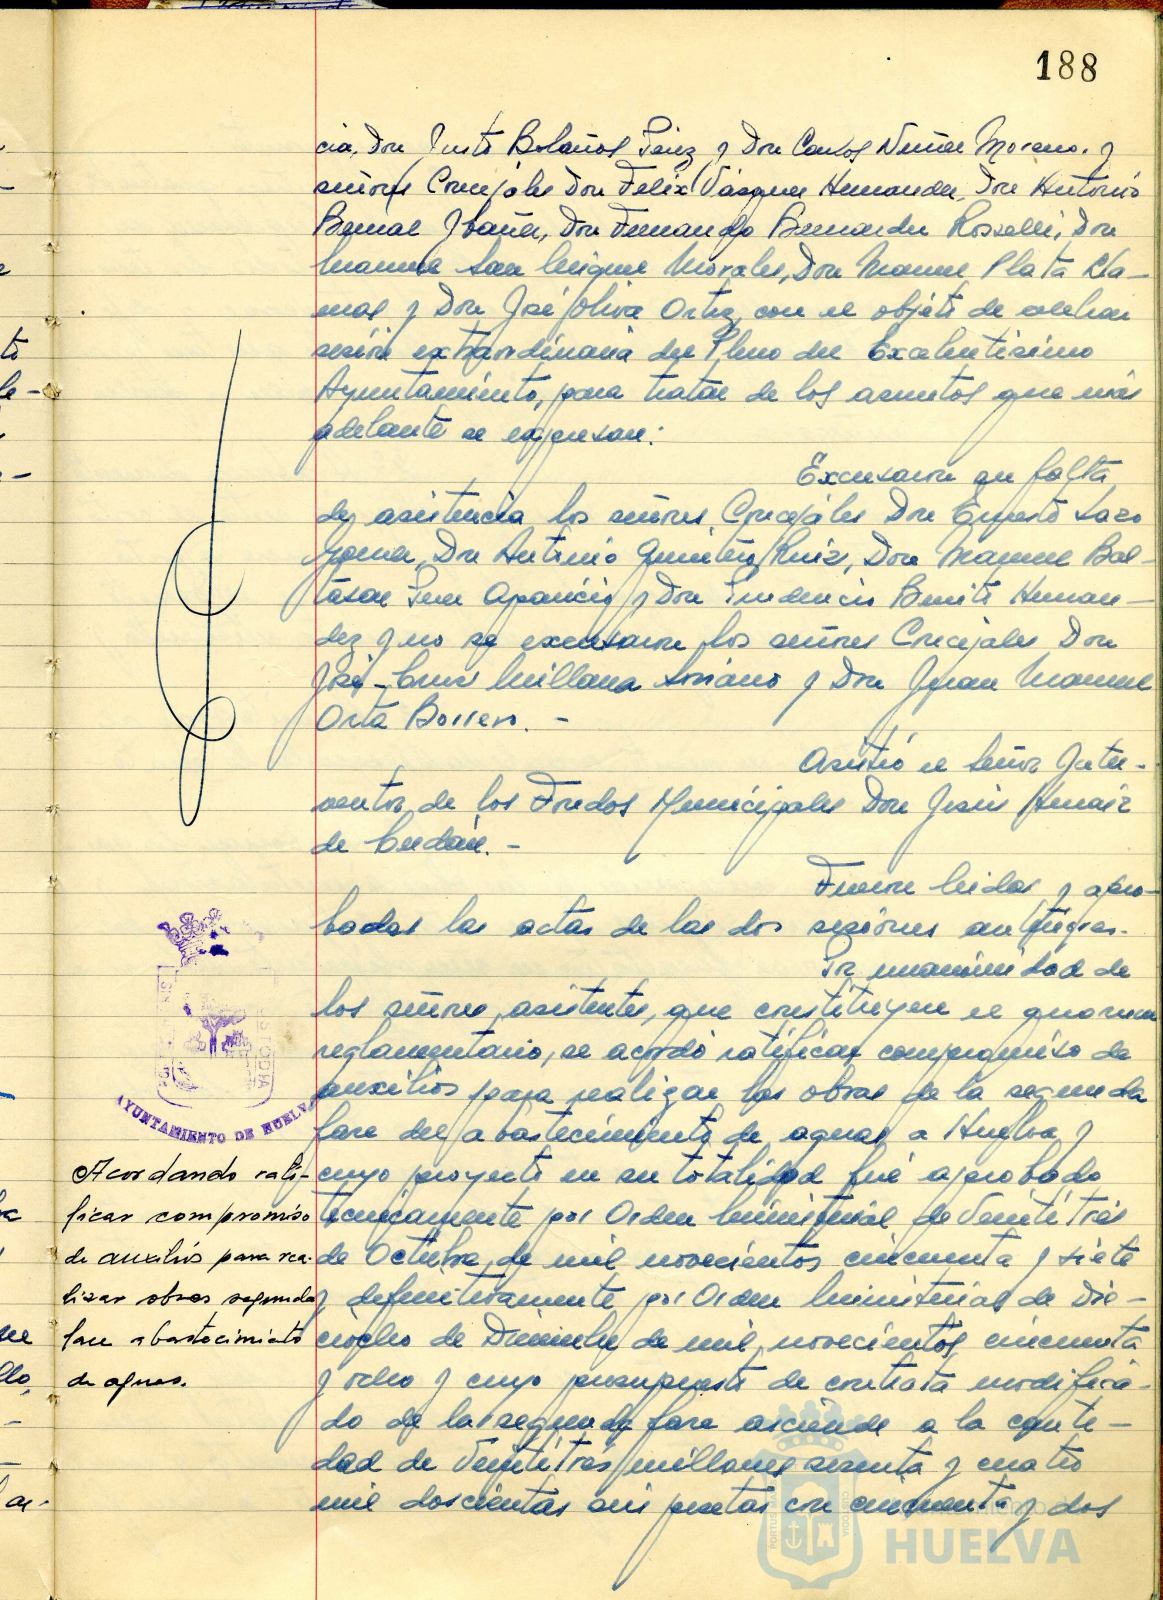 188
cia, Don Justo Bolaños Pérez y Don Carlos Núñez Moreno. y
señores Concejales Don Felix Vázquez Hernandez, Don Antonio
Bernal Ybañez, Don Fernando Bernardez Rosselli, Don
Manuel San Miguel Morales, Don Manuel Plata Lla-
mas y Don José Oliva Ortiz, con el objeto de celebrar
sesión extraordinaria del Pleno del Excelentísimo
Ayuntamiento, para tratar de los asuntos que más
adelante se expresan:
Excusaron su falta
de asistencia los señores Concejales Don Ernesto Lazo
Don Antonio Quintero Ruiz, Don Manuel Bal-
tasar Aparicio y Don Prudencio Benito Hernan-
dez y no se excusaron los señores Concejales Don
José-Cruz Millana Soriano y Don Juan Manuel
Orta Borrero. -
Asistió el Señor Inter-
ventor de los Fondos Municipales Don Jesús Arnaiz
de
Fueron leidas y apro-
badas las actas de las dos sesiones anteriores.
Por unanimidad de
los señores asistentes, que constituyen el quorum
reglamentario, se acordó ratificar compromiso de
auxilios para realizar las obras de la segunda
fase del abastecimiento de aguas a Huelva y
cuyo proyecto en su totalidad fué aprobado
técnicamente por Orden Ministerial de Veintitrés
de Octubre de mil novecientos cincuenta y siete
y definitivamente por Orden Ministerial de Die-
ciocho de Diciembre de mil novecientos cincuenta
y ocho y cuyo presupuesto de contrata modifica-
do de la segunda fase asciende a la canti-
dad de Veintitrés millones sesenta y cuatro
mil doscientas seis pesetas con cincuenta y dos
AYUNTAMIENTO DE HUELVA
Acordando rati-
ficar compromiso
de auxilios para rea-
lizar obras segunda
fase abastecimiento
de aguas.
HUELVA